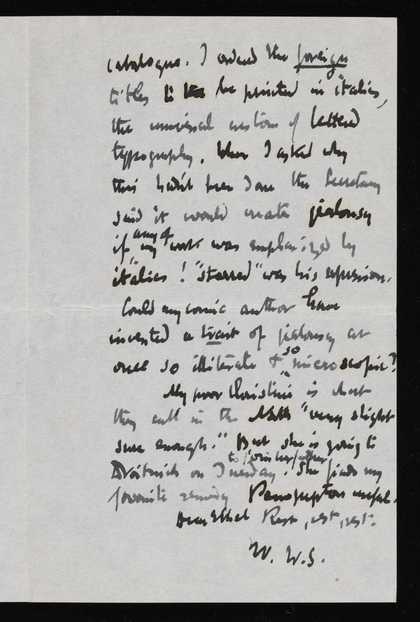 catalogue. I ordered the foreign
titles to be printed in italics,
the universal custom of lettered
typography. When I asked why
this hadn't been done the Secretary
said it would create jealousy
if any of my work was emphasized by
italics! "starred" was his expression.
Could any comic author have
invented a trait of jealousy at
once so illiterate & so microscopic?
My poor Christine is what
they call in the "very slight
sure enough." But she is going to
Droitwich on Tuesday to join her father. She finds my
favourite remedy useful.
Dear Ethel Rest, rest, rest.
W. W. S.